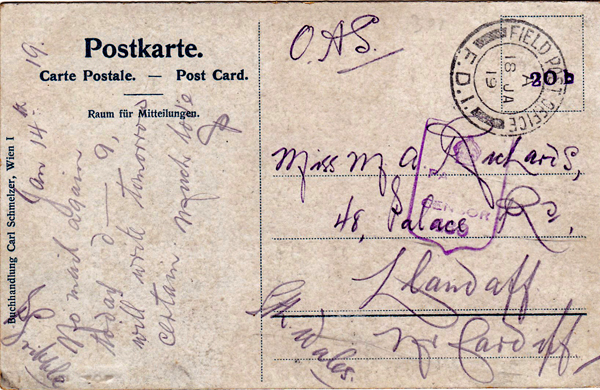 Postkarte.
Carte Postale. — Post Card.
Raum für Mitteilungen.
Buchhandlung Carl Schmelzer, Wien I
Jan 14th 19.
No mail again
today
will write tomorrow
certain much love
O.A.S.
FIELD POST OFFICE
F.D.1.
A
18 JA
19
20 b
CENSOR
Miss M A Richards,
48, Palace Rd,
Llandaff
Nr Cardiff
Sth Wales.